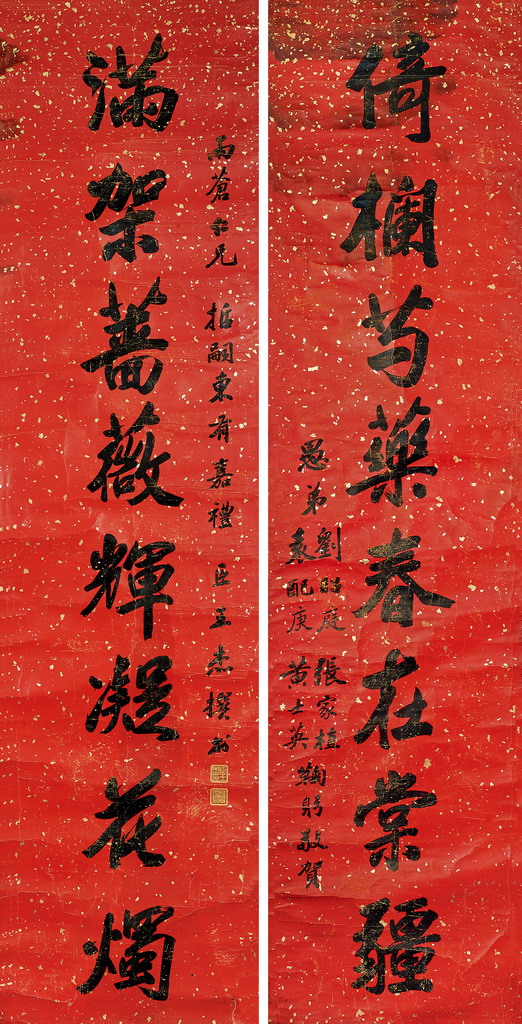 倚欄芍藥春在棠疆
愚弟
劉昭庭 張家植
袁配庚 黃士英
鞠躬敬賀
雨蒼仁兄 哲嗣東 嘉禮 臣王杰撰
滿架薔薇輝凝花燭